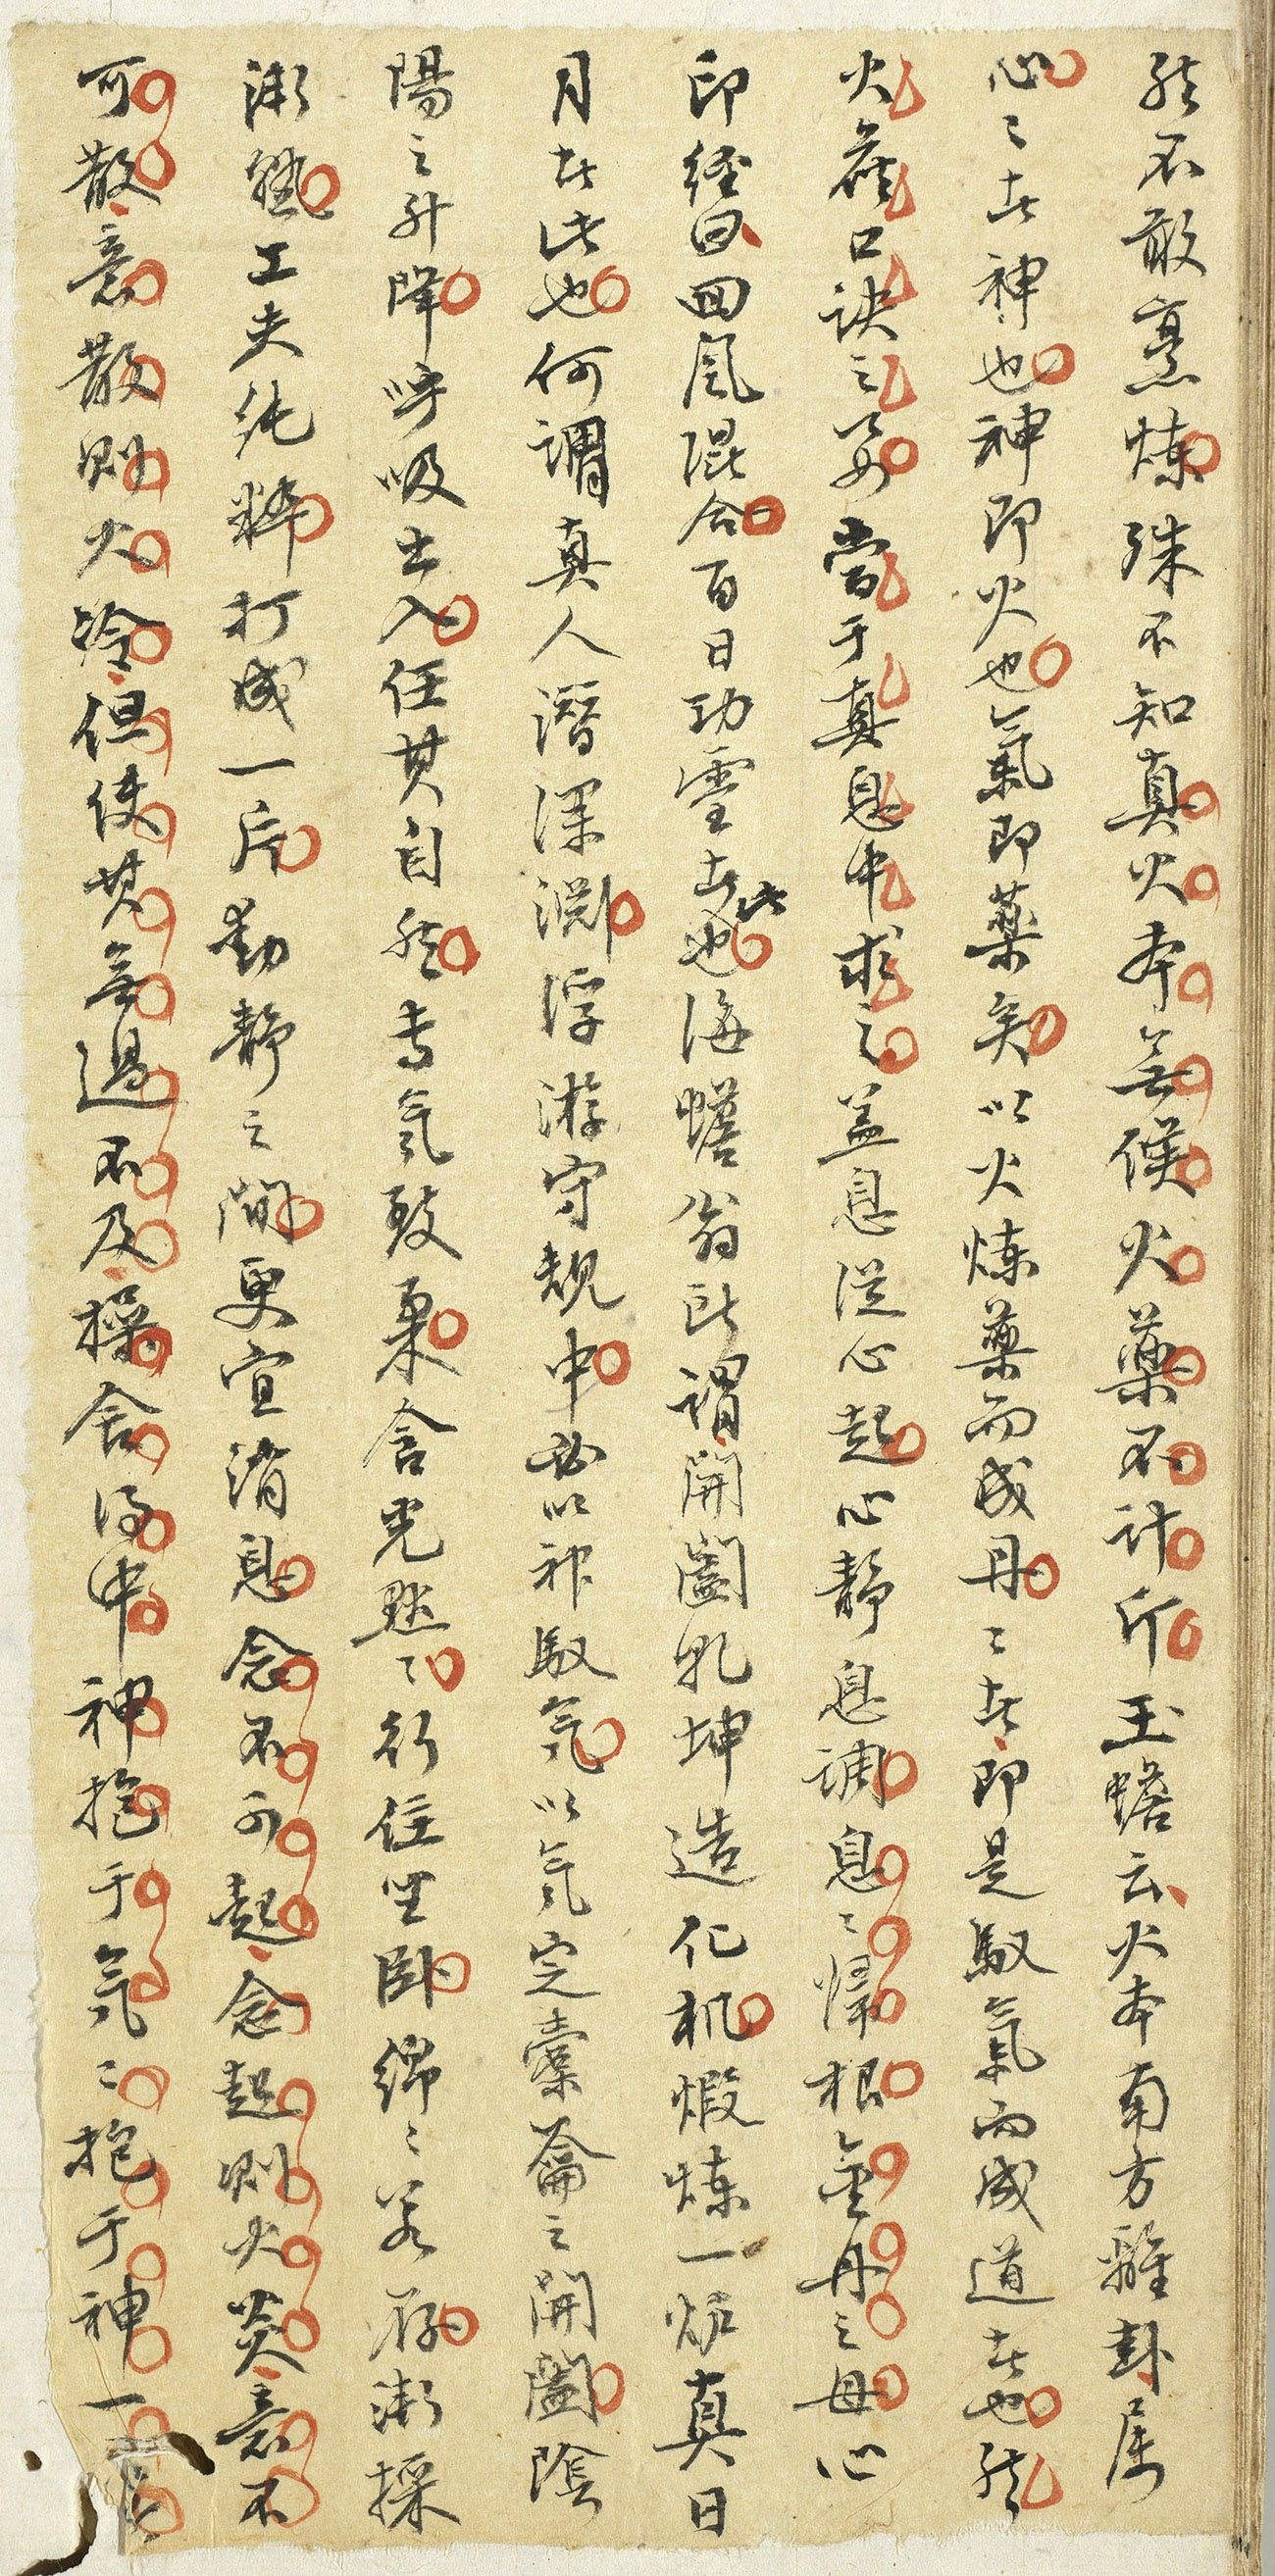 然不敢烹煉殊不知真火本無候火藥不計斤玉蟾云火本南方離卦属
心〻者神也神即火也氣即藥矣以火煉藥而成丹〻者即是馭氣而成道者也然
火候口訣之要當于真息中求之盖息從心起心靜息調息〻歸根金丹之母心
印經曰回風混合百日功霊者此也海蟾翁所謂開闔乹坤造化机煅煉一炉真日
月者此也何謂真人潛深淵浮游守規中必以神馭気以気定橐籥之開闔陰
陽之升降呼吸出入任其自然専気致柔含光黙〻行住坐臥綿〻若存漸採
漸煉工夫純粹打成一片動静之間更宜消息念不可起念起則火炎意不
可散意散則火冷但使其無過不及操舍得中神抱于気〻抱于神一